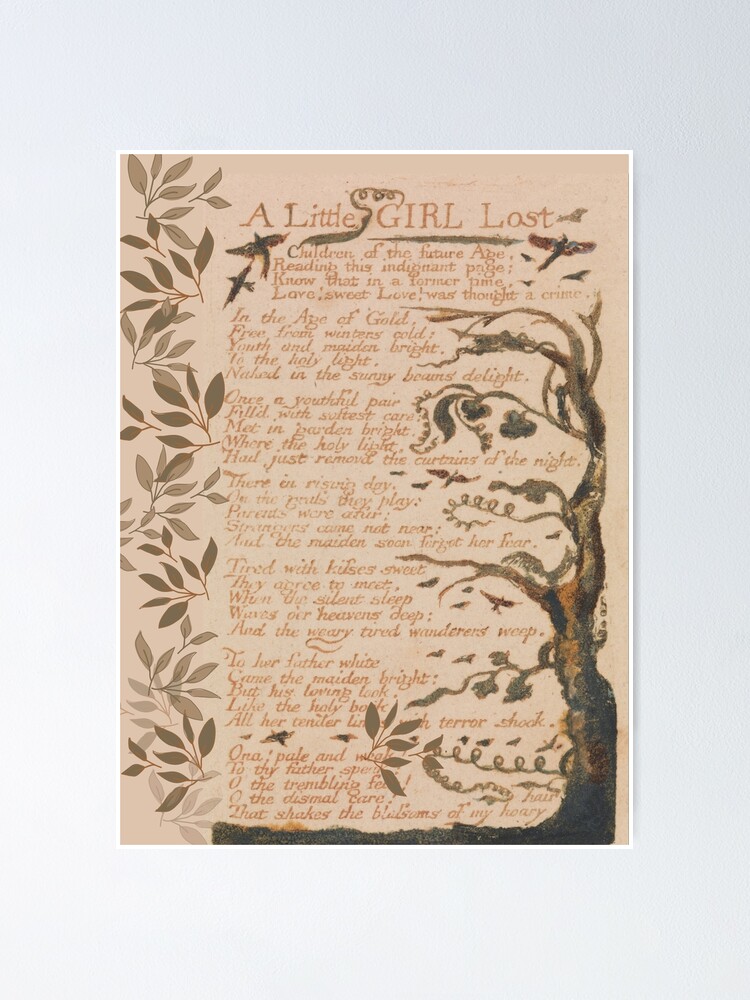 A Little GIRL Lost
Children of the future Age,
Reading this indignant page;
Know that in a former time,
Love! sweet Love! was thought a crime.
In the Age of Gold,
Free from winters cold:
Youth and maiden bright,
To the holy light,
Naked in the sunny beams delight.
Once a youthful pair
Fill'd with softest care:
Met in garden bright,
Where the holy light,
Had just removd the curtains of the night.
There in rising day,
On the grass they play:
Parents were afar:
Strangers came not near:
And the maiden soon forgot her fear.
Tired with kisses sweet
They agree to meet,
When the silent sleep
Waves oer heavens deep;
And the weary tired wanderers weep.
To her father white
Came the maiden bright:
But his loving look,
Like the holy book,
All her tender with terror shook.
Ona! pale and
To thy father
O the trembling
O the dismal care!
That shakes the blossoms of my hoary
hair